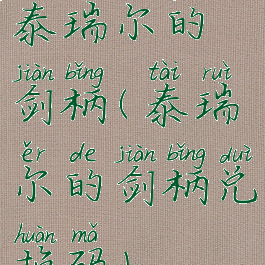 泰瑞尔的
jiàn bǐng tài ruì
剑柄(泰瑞
ěr de jiàn bǐng duì
尔的剑柄兑
huàn mǎ
换码)